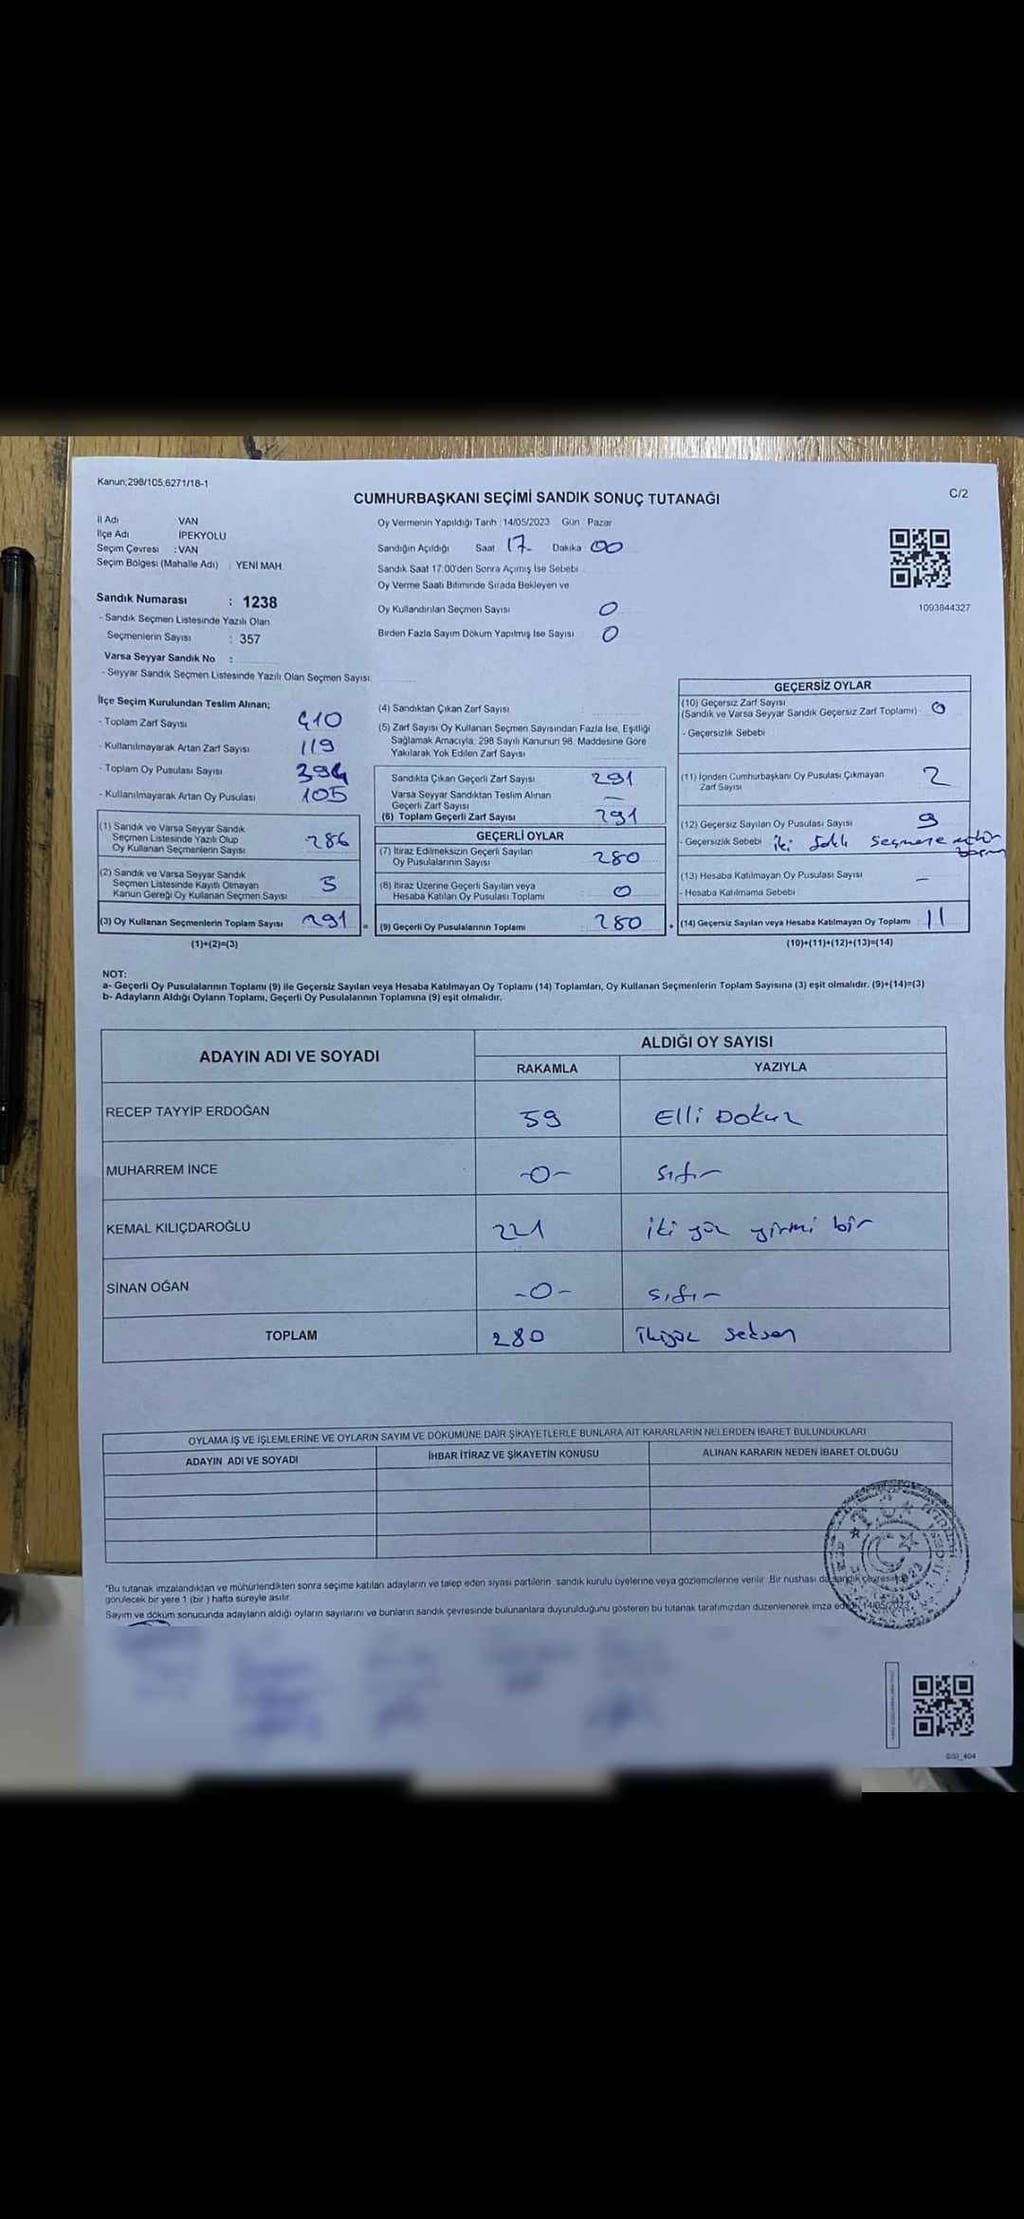 Kanun;298/105,6271/18-1
C/2
CUMHURBAŞKANI SEÇİMİ SANDIK SONUÇ TUTANAĞI
İl Adı VAN
İlçe Adı İPEKYOLU
Seçim Çevresi : VAN
Seçim Bölgesi (Mahalle Adı) : YENİ MAH.
Sandık Numarası : 1238
- Sandık Seçmen Listesinde Yazılı Olan
Seçmenlerin Sayısı : 357
Varsa Seyyar Sandık No :
- Seyyar Sandık Seçmen Listesinde Yazılı Olan Seçmen Sayısı
Oy Vermenin Yapıldığı Tarih : 14/05/2023 Gün : Pazar
Sandığın Açıldığı Saat 17 Dakika 00
Sandık Saat 17:00'den Sonra Açılmış İse Sebebi
Oy Verme Saati Bitiminde Sırada Bekleyen ve
Oy Kullandırılan Seçmen Sayısı 0
Birden Fazla Sayım Döküm Yapılmış İse Sayısı 0
1093844327
İlçe Seçim Kurulundan Teslim Alınan;
- Toplam Zarf Sayısı 410
- Kullanılmayarak Artan Zarf Sayısı 119
- Toplam Oy Pusulası Sayısı 394
- Kullanılmayarak Artan Oy Pusulası 105
(1) Sandık ve Varsa Seyyar Sandık
Seçmen Listesinde Yazılı Olup
Oy Kullanan Seçmenlerin Sayısı 286
(2) Sandık ve Varsa Seyyar Sandık
Seçmen Listesinde Kayıtlı Olmayan
Kanun Gereği Oy Kullanan Seçmen Sayısı 5
(3) Oy Kullanan Seçmenlerin Toplam Sayısı 291
(1)+(2)=(3)
(4) Sandıktan Çıkan Zarf Sayısı
(5) Zarf Sayısı Oy Kullanan Seçmen Sayısından Fazla İse, Eşitliği
Sağlamak Amacıyla, 298 Sayılı Kanunun 98. Maddesine Göre
Yakılarak Yok Edilen Zarf Sayısı
Sandıkta Çıkan Geçerli Zarf Sayısı 291
Varsa Seyyar Sandıktan Teslim Alınan
Geçerli Zarf Sayısı —
(6) Toplam Geçerli Zarf Sayısı 291
GEÇERLİ OYLAR
(7) İtiraz Edilmeksizin Geçerli Sayılan
Oy Pusulalarının Sayısı 280
(8) İtiraz Üzerine Geçerli Sayılan veya
Hesaba Katılan Oy Pusulası Toplamı 0
= (9) Geçerli Oy Pusulalarının Toplamı 280
GEÇERSİZ OYLAR
(10) Geçersiz Zarf Sayısı
(Sandık ve Varsa Seyyar Sandık Geçersiz Zarf Toplamı) 0
- Geçersizlik Sebebi
(11) İçinden Cumhurbaşkanı Oy Pusulası Çıkmayan
Zarf Sayısı 2
(12) Geçersiz Sayılan Oy Pusulası Sayısı 9
- Geçersizlik Sebebi iki farklı seçmene
(13) Hesaba Katılmayan Oy Pusulası Sayısı —
- Hesaba Katılmama Sebebi
+ (14) Geçersiz Sayılan veya Hesaba Katılmayan Oy Toplamı 11
(10)+(11)+(12)+(13)=(14)
NOT:
a- Geçerli Oy Pusulalarının Toplamı (9) ile Geçersiz Sayılan veya Hesaba Katılmayan Oy Toplamı (14) Toplamları, Oy Kullanan Seçmenlerin Toplam Sayısına (3) eşit olmalıdır. (9)+(14)=(3)
b- Adayların Aldığı Oyların Toplamı, Geçerli Oy Pusulalarının Toplamına (9) eşit olmalıdır.
ADAYIN ADI VE SOYADI ALDIĞI OY SAYISI
RAKAMLA YAZIYLA
RECEP TAYYİP ERDOĞAN 59 Elli Dokuz
MUHARREM İNCE -0- sıfır
KEMAL KILIÇDAROĞLU 221 iki yüz yirmi bir
SİNAN OĞAN -0- sıfır
TOPLAM 280 ikiyüz seksen
OYLAMA İŞ VE İŞLEMLERİNE VE OYLARIN SAYIM VE DÖKÜMÜNE DAİR ŞİKAYETLERLE BUNLARA AİT KARARLARIN NELERDEN İBARET BULUNDUKLARI
ADAYIN ADI VE SOYADI İHBAR İTİRAZ VE ŞİKAYETİN KONUSU ALINAN KARARIN NEDEN İBARET OLDUĞU
"Bu tutanak imzalandıktan ve mühürlendikten sonra seçime katılan adayların ve talep eden siyasi partilerin sandık kurulu üyelerine veya gözlemcilerine verilir. Bir nüshası da sandık çevresinde
görülecek bir yere 1 (bir ) hafta süreyle asılır.
Sayım ve döküm sonucunda adayların aldığı oyların sayılarını ve bunların sandık çevresinde bulunanlara duyurulduğunu gösteren bu tutanak tarafımızdan düzenlenerek imza edildi. 14/05/2023
GSI_404